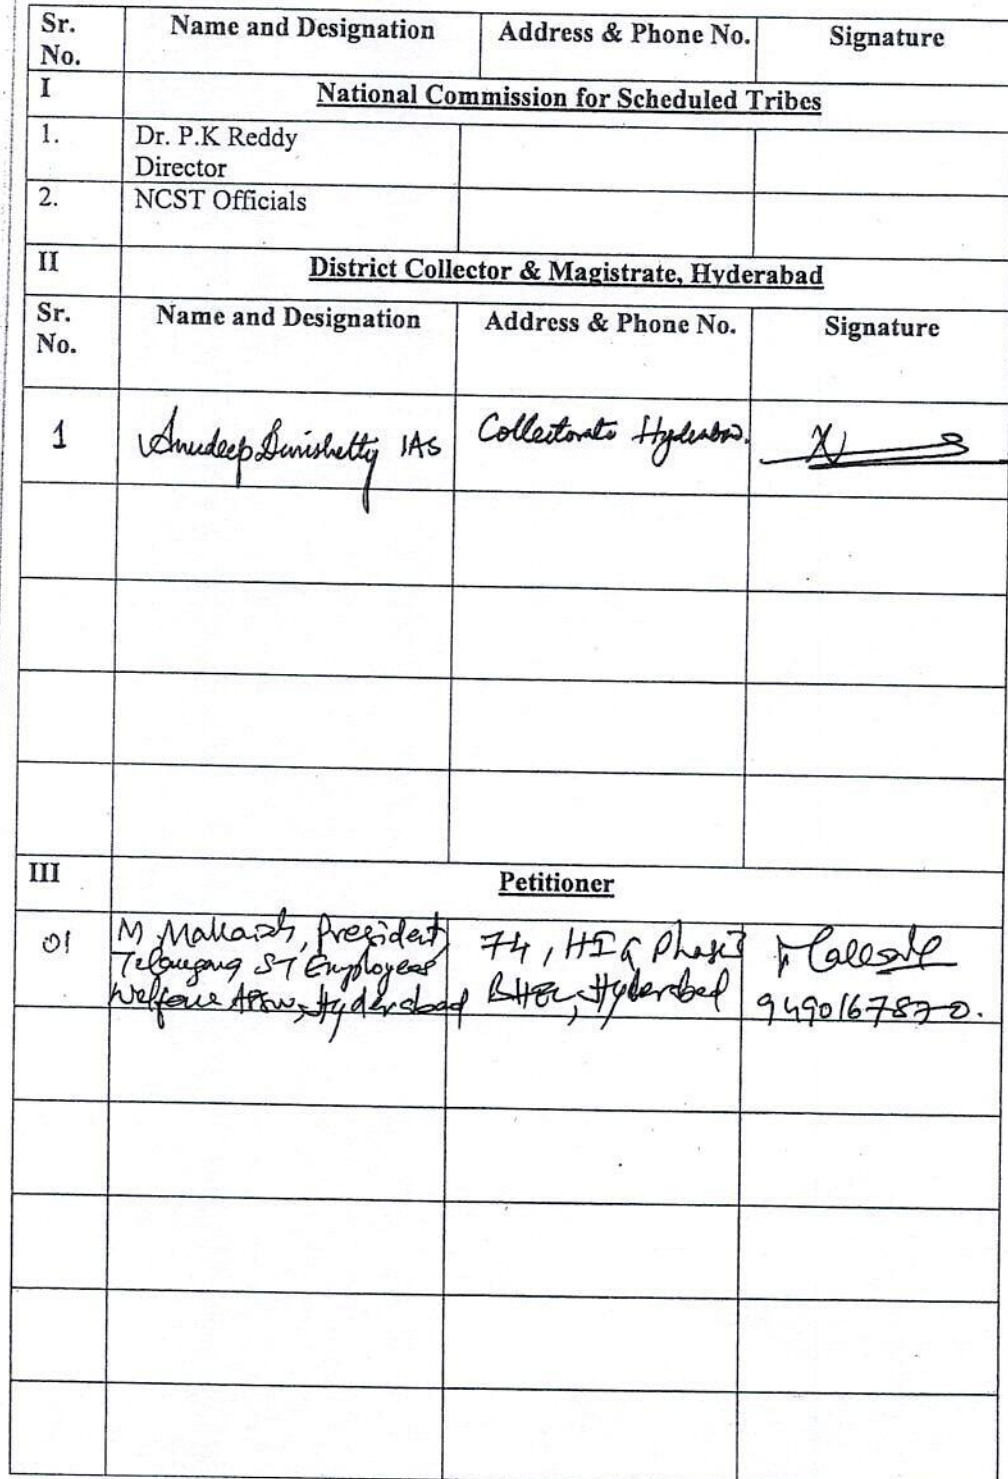 Sr. No. Name and Designation Address & Phone No. Signature
I National Commission for Scheduled Tribes
1. Dr. P.K Reddy
Director
2. NCST Officials
II District Collector & Magistrate, Hyderabad
Sr. No. Name and Designation Address & Phone No. Signature
1 Anudeep Durishetty IAS Collectorate Hyderabad.
III Petitioner
01 M Mallaiah, President, 74, HIG Phase
Telangana ST Employees BHEL, Hyderabad
Welfare Assn, Hyderabad 9490167870.